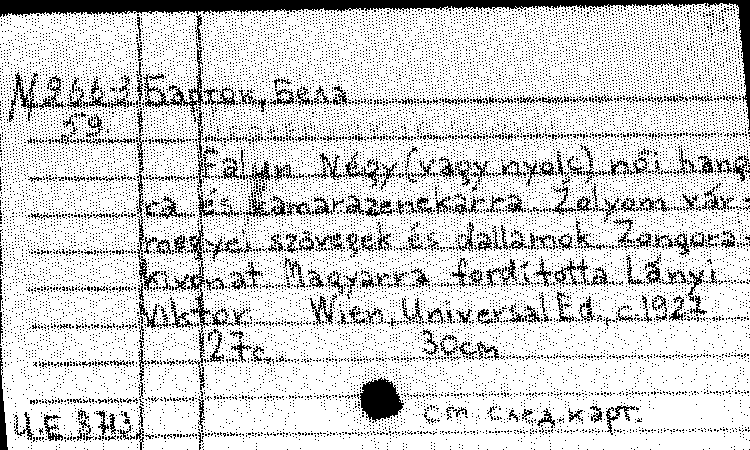 N 266-3 Барток, Бела
59.
Falun Négy (vagy nyolc) női hang
ca és kamarazenekarra Zólyom vár-
megyei szövegek és dallamok Zongora-
kivonat Magyarra fordította Lányi
Viktor. Wien, Universal Ed., c.1927
27c. 30cm
U.E. 8713. ст. след. карт.